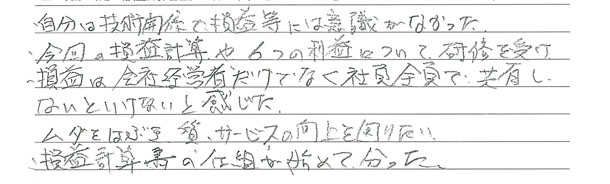 自分は技術関係で損益等には意識がなかった。
・今回の損益計算や6つの利益について研修を受け
・損益は会社経営者だけでなく社員全員で共有し
ないといけないと感じた。
ムダをはぶき質、サービスの向上を図りたい
・損益計算書の仕組が始めて分った。